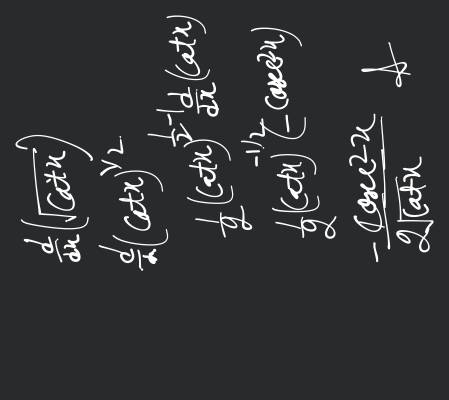 d/dx (√cotx)
d/dx (cotx)^1/2
1/2 (cotx)^1/2-1 d/dx (cotx)
1/2 (cotx)^-1/2 (-cosec²x)
-cosec²x / 2√cotx